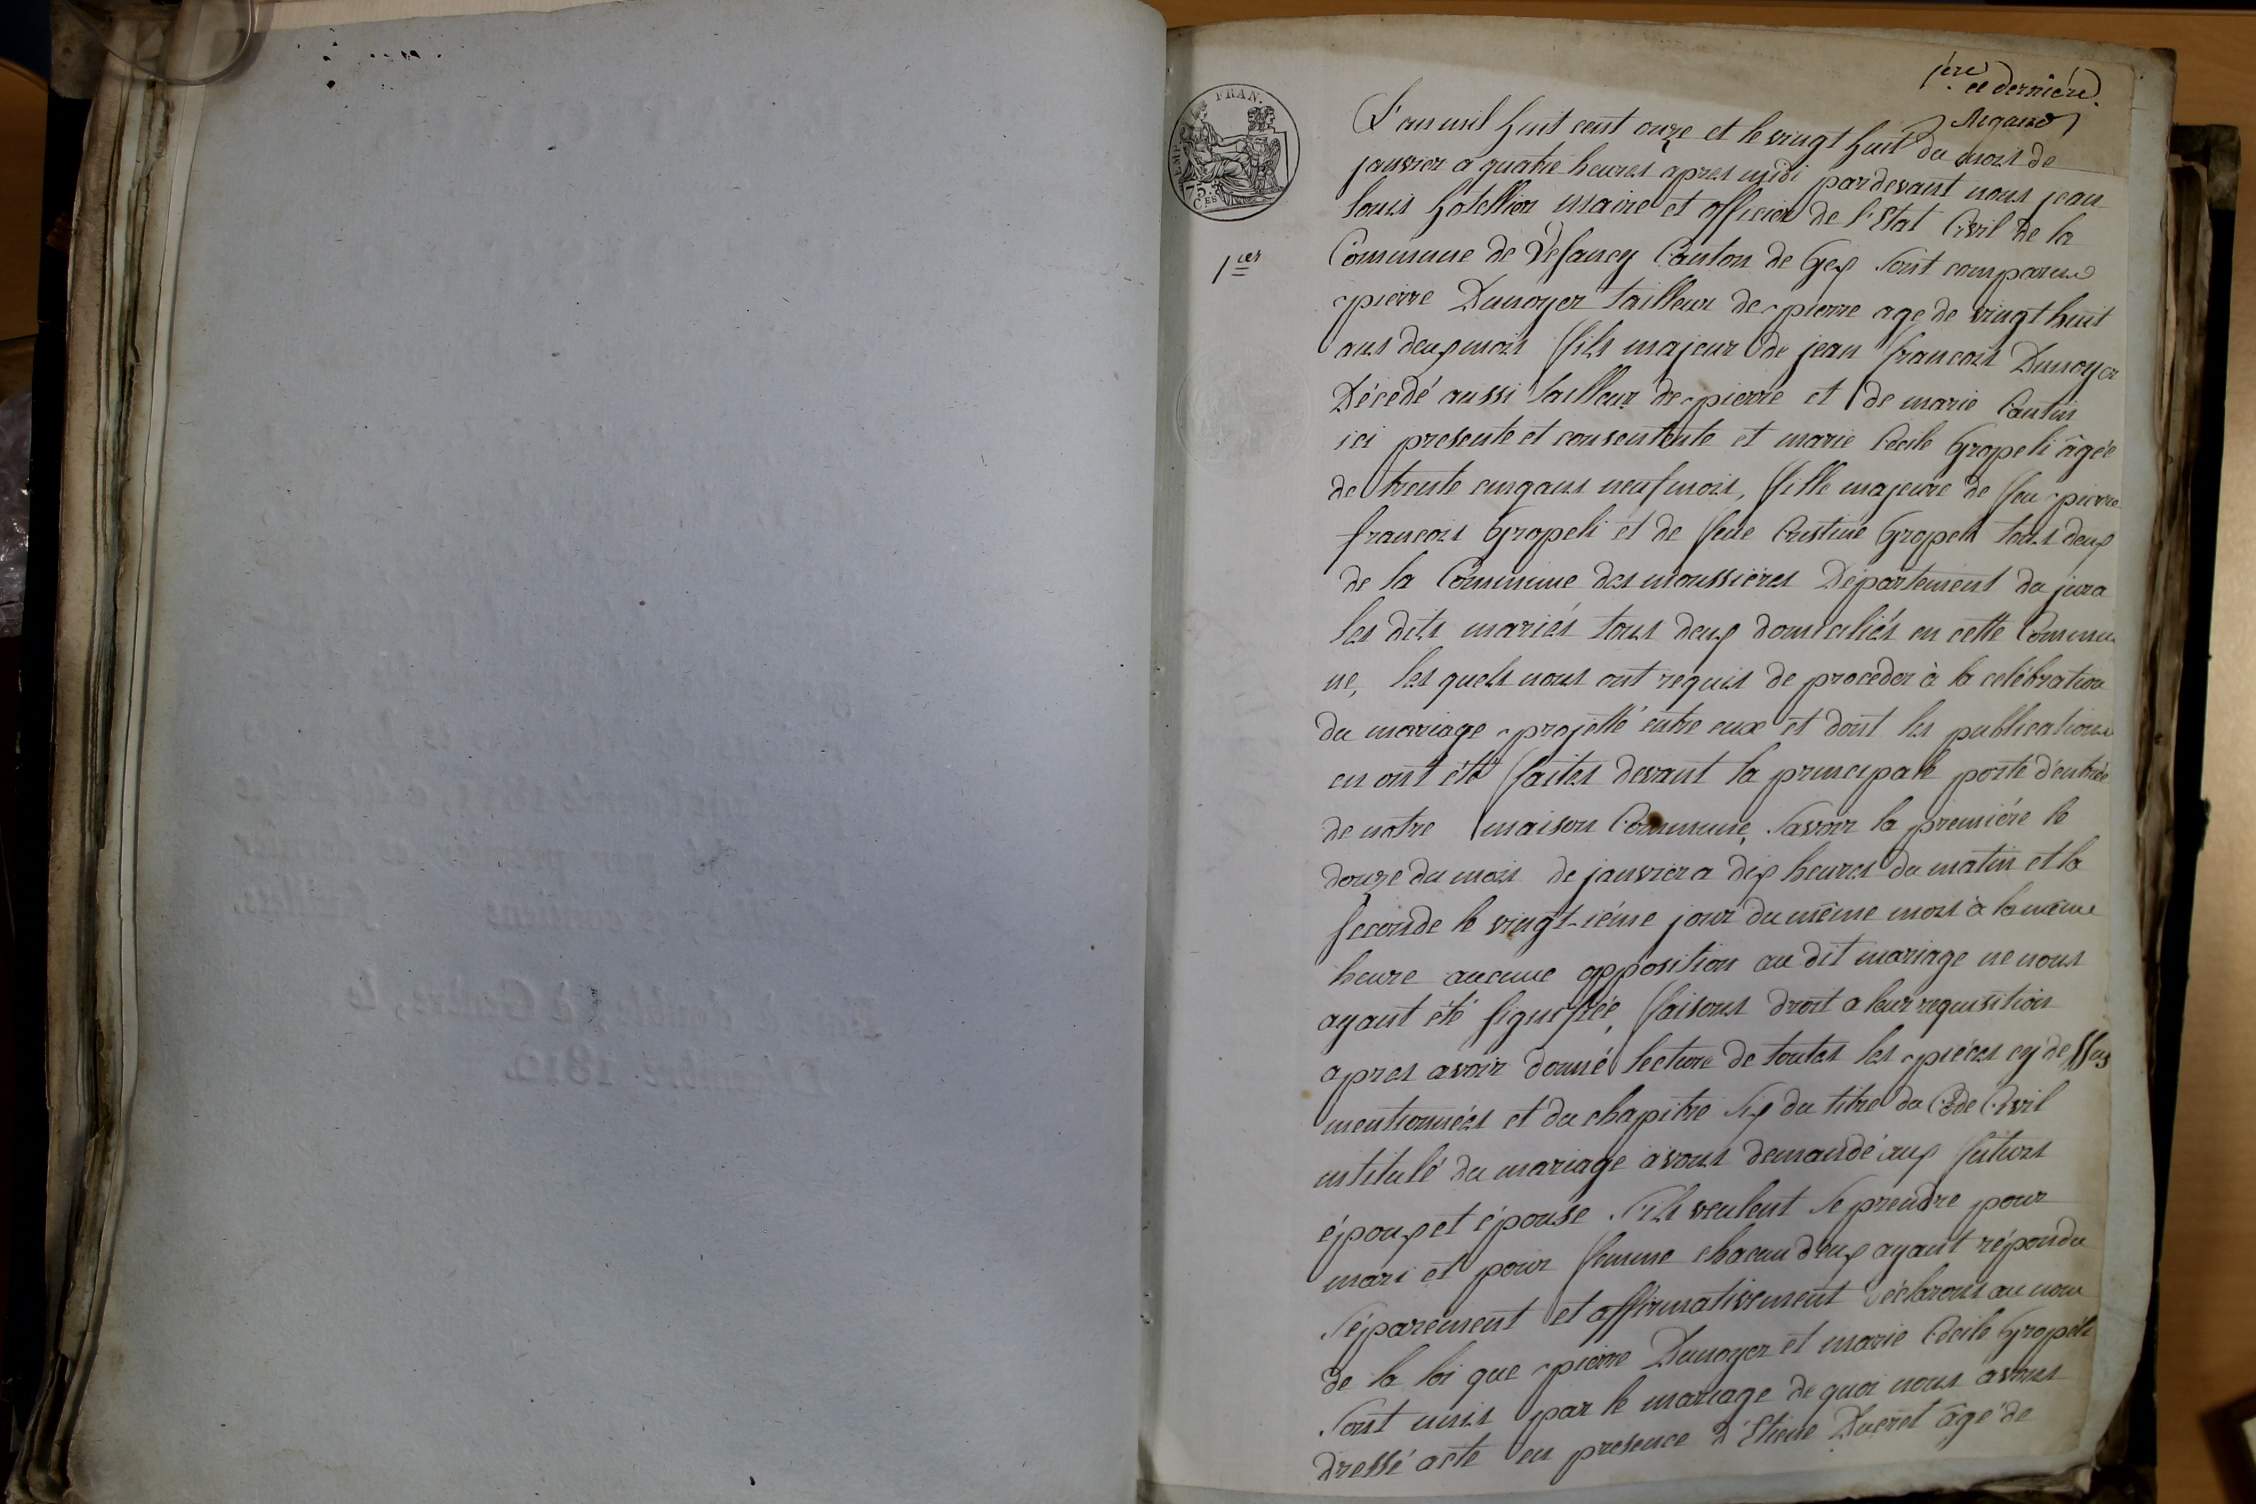 1ère et dernière
EMP. FRAN.
75 CES
1er
L'an mil huit cent onze et le vingt huit du mois de
janvier a quatre heures apres midi pardevant nous jean
louis hotellier maire et officier de l'Etat Civil de la
Commune de Vesancy Canton de Gex sont comparus
pierre Dunoyer tailleur de pierre age de vingt huit
ans deux mois fils majeur de jean francois Dunoyer
Décédé aussi tailleur de pierre et de marie Cantin
ici presente et consentente et marie Cécile Gropeli âgée
de trente cinq ans neuf mois, fille majeure de feu pierre
francois Gropeli et de feue Cristine Gropeli tous deux
de la Commune des moussières Département du jura
les dits mariés tous deux domiciliés en cette Commu
ne, les quels nous ont requis de proceder à la celébration
du mariage projetté entre eux et dont les publications
en ont été faites devant la principale porte d'entrée
de notre maison Commune, savoir la première le
douze du mois de janvier a dix heures du matin et la
seconde le vingt-ième jour du même mois à la même
heure aucune opposition au dit mariage ne nous
ayant été signifiée, faisons droit a leur requisition
apres avoir donné lecture de toutes les pièces cy dessus
mentionnées et du chapitre six du titre du Code Civil
intitulé du mariage avons demandé aux futurs
époux et épouse s'ils veulent se prendre pour
mari et pour femme chacun d'eux ayant répondu
séparément et affirmativement déclarons au nom
de la loi que pierre Dunoyer et marie Cécile Gropeli
sont unis par le mariage de quoi nous avons
dressé acte en presence d'Etiene Ducret âgé de